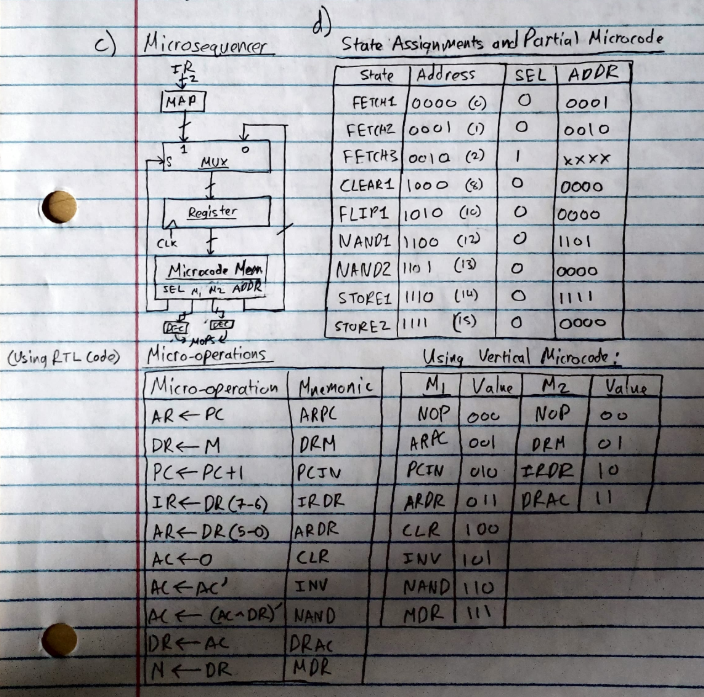 c) Microsequencer
IR
2
MAP
1 0
S MUX
Register
CLK
Microcode Mem
SEL M1 M2 ADDR
3 2
DEC DEC
MOPS
d)
State Assignments and Partial Microcode
State Address SEL ADDR
FETCH1 0000 (0) 0 0001
FETCH2 0001 (1) 0 0010
FETCH3 0010 (2) 1 xxxx
CLEAR1 1000 (8) 0 0000
FLIP1 1010 (10) 0 0000
NAND1 1100 (12) 0 1101
NAND2 1101 (13) 0 0000
STORE1 1110 (14) 0 1111
STORE2 1111 (15) 0 0000
(Using RTL Code) Micro-operations
Micro-operation Mnemonic
AR ← PC ARPC
DR ← M DRM
PC ← PC+1 PCIN
IR ← DR (7-6) IRDR
AR ← DR (5-0) ARDR
AC ← 0 CLR
AC ← AC' INV
AC ← (AC ^ DR)' NAND
DR ← AC DRAC
M ← DR MDR
Using Vertical Microcode:
M1 Value M2 Value
NOP 000 NOP 00
ARPC 001 DRM 01
PCIN 010 IRDR 10
ARDR 011 DRAC 11
CLR 100
INV 101
NAND 110
MDR 111